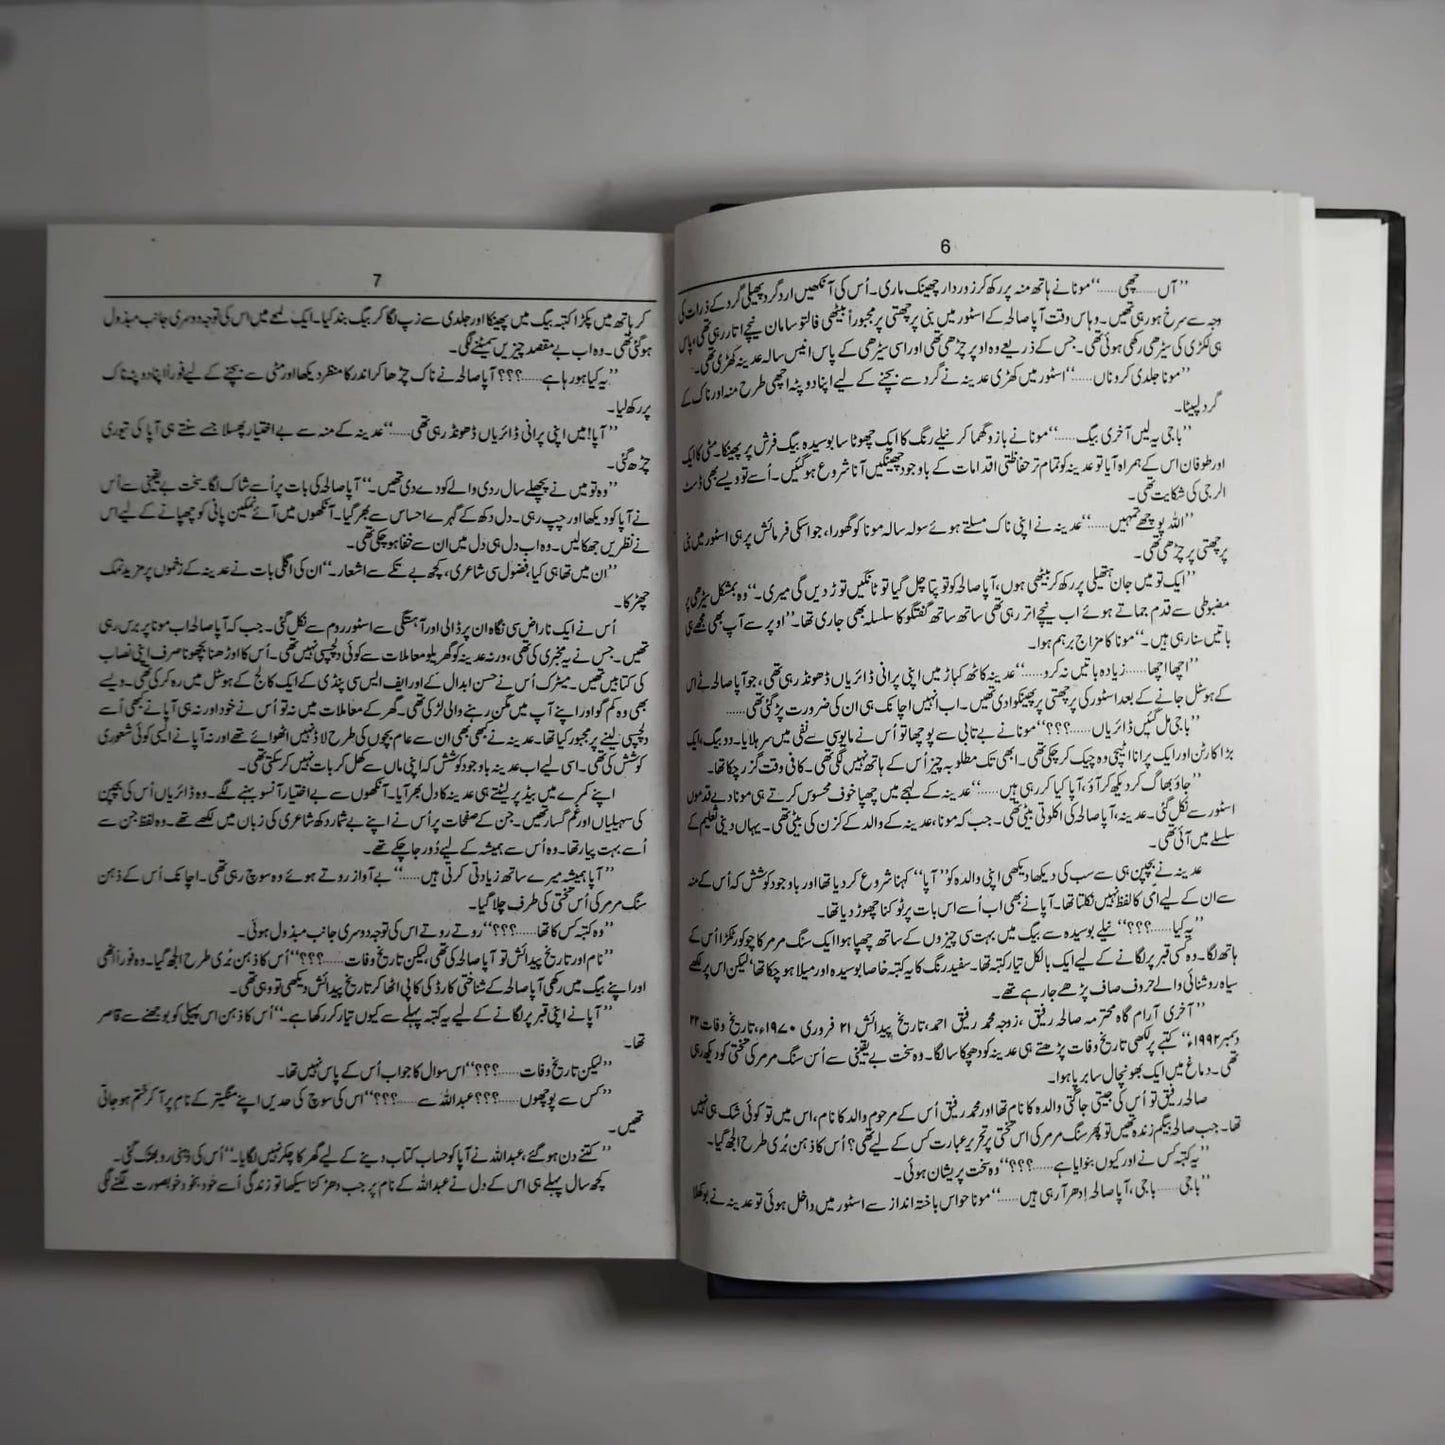 6
”آں……چھی……“مونا نے ہاتھ منہ پر رکھ کر زور دار چھینک ماری۔ اُس کی آنکھیں ارد گرد پھیلی گرد کے ذرات کی
وجہ سے سرخ ہو رہی تھیں۔ وہ اس وقت آپا صالحہ کے اسٹور میں بنی پر چھتی پر مجبوراً بیٹھی فالتو سامان نیچے اتار رہی تھی، پاس
ہی لکڑی کی سیڑھی رکھی ہوئی تھی۔ جس کے ذریعے وہ اوپر چڑھی تھی اور اسی سیڑھی کے پاس انیس سالہ عدینہ کھڑی تھی۔
”مونا جلدی کرو ناں……“اسٹور میں کھڑی عدینہ نے گرد سے بچنے کے لیے اپنا دوپٹہ اچھی طرح منہ اور ناک کے
گرد لپیٹا۔
”باجی یہ لیں آخری بیگ……“مونا نے بازو گھما کر نیلے رنگ کا ایک چھوٹا سا بوسیدہ بیگ فرش پر پھینکا۔ مٹی کا ایک
اور طوفان اس کے ہمراہ آیا تو عدینہ کو تمام تر حفاظتی اقدامات کے باوجود چھینکیں آنا شروع ہو گئیں۔ اُسے تو ویسے بھی ڈسٹ
الرجی کی شکایت تھی۔
”اللہ پوچھے تمہیں……“عدینہ نے اپنی ناک مسلتے ہوئے سولہ سالہ مونا کو گھورا، جو اسکی فرمائش پر ہی اسٹور میں بنی
پر چھتی پر چڑھی تھی۔
”ایک تو میں جان ہتھیلی پر رکھ کر بیٹھی ہوں، آپا صالحہ کو تو پتا چل گیا تو ٹانگیں توڑ دیں گی میری۔“ وہ بمشکل سیڑھی پر
مضبوطی سے قدم جماتے ہوئے اب نیچے اتر رہی تھی ساتھ ساتھ گفتگو کا سلسلہ بھی جاری تھا۔ ”اوپر سے آپ بھی مجھے ہی
باتیں سنا رہی ہیں۔“مونا کا مزاج برہم ہوا۔
”اچھا اچھا……زیادہ باتیں نہ کرو……“عدینہ کاٹھ کباڑ میں اپنی پرانی ڈائریاں ڈھونڈ رہی تھی، جو آپا صالحہ نے اس
کے ہوسٹل جانے کے بعد اسٹور کی پر چھتی پر پھینکوا دی تھیں۔ اب انہیں اچانک ہی ان کی ضرورت پڑ گئی تھی……
”باجی مل گئیں ڈائریاں……؟؟؟“مونا نے بے تابی سے پوچھا تو اُس نے مایوسی سے نفی میں سر ہلایا۔ دو بیگ، ایک
بڑا کارٹن اور ایک پرانا اٹیچی وہ چیک کر چکی تھی۔ ابھی تک مطلوبہ چیز اُس کے ہاتھ نہیں لگی تھی۔ کافی وقت گزر چکا تھا۔
”جاؤ بھاگ کر دیکھ کر آؤ، آپا کیا کر رہی ہیں……“عدینہ کے لہجے میں چھپا خوف محسوس کرتے ہی مونا دبے قدموں
اسٹور سے نکل گئی۔ عدینہ، آپا صالحہ کی اکلوتی بیٹی تھی۔ جب کہ مونا، عدینہ کے والد کے کزن کی بیٹی تھی۔ یہاں دینی تعلیم کے
سلسلے میں آئی تھی۔
عدینہ نے بچپن ہی سے سب کی دیکھا دیکھی اپنی والدہ کو ”آپا“ کہنا شروع کر دیا تھا اور باوجود کوشش کہ اُس کے منہ
سے ان کے لیے اَمّی کا لفظ نہیں نکلتا تھا۔ آپا نے بھی اب اُسے اس بات پر ٹوکنا چھوڑ دیا تھا۔
”یہ کیا……؟؟؟“ نیلے بوسیدہ سے بیگ میں بہت سی چیزوں کے ساتھ چھپا ہوا ایک سنگ مرمر کا چوکور ٹکڑا اُس کے
ہاتھ لگا۔ وہ کسی قبر پر لگانے کے لیے ایک بالکل تیار کتبہ تھا۔ سفید رنگ کا یہ کتبہ خاصا بوسیدہ اور میلا ہو چکا تھا‘ لیکن اس پر لکھے
سیاہ روشنائی والے حروف صاف پڑھے جا رہے تھے۔
”آخری آرام گاہ محترمہ صالحہ رفیق، زوجہ محمد رفیق احمد، تاریخ پیدائش ۲۱ فروری ۱۹۷۰ء، تاریخ وفات ۲۲
دسمبر ۱۹۹۲ء“ کتبے پر لکھی تاریخ وفات پڑھتے ہی عدینہ کو دھچکا سا لگا۔ وہ سخت بے یقینی سے اُس سنگ مرمر کی تختی کو دیکھ رہی
تھی۔ دماغ میں ایک بھونچال سا برپا ہوا۔
صالحہ رفیق تو اُس کی جیتی جاگتی والدہ کا نام تھا اور محمد رفیق اُس کے مرحوم والد کا نام، اس میں تو کوئی شک ہی نہیں
تھا۔ جب صالحہ بیگم زندہ تھیں تو پھر سنگ مرمر کی اس تختی پر تحریر عبارت کس کے لیے تھی؟ اُس کا ذہن بُری طرح الجھ گیا۔
”یہ کتبہ کس نے اور کیوں بنوایا ہے……؟؟؟“ وہ سخت پریشان ہوئی۔
”باجی……باجی، آپا صالحہ اِدھر آ رہی ہیں……“ مونا حواس باختہ انداز سے اسٹور میں داخل ہوئی تو عدینہ نے بوکھلا
7
کر ہاتھ میں پکڑا کتبہ بیگ میں پھینکا اور جلدی سے زپ لگا کر بیگ بند کیا۔ ایک لمحے میں اس کی توجہ دوسری جانب مبذول
ہو گئی تھی۔ وہ اب بے مقصد چیزیں سمیٹنے لگی۔
”یہ کیا ہو رہا ہے……؟؟؟ آپا صالحہ نے ناک چڑھا کر اندر کا منظر دیکھا اور مٹی سے بچنے کے لیے فوراً اپنا دوپٹہ ناک
پر رکھ لیا۔
”آپا! میں اپنی پرانی ڈائریاں ڈھونڈ رہی تھی……“عدینہ کے منہ سے بے اختیار پھسلا جسے سنتے ہی آپا کی تیوری
چڑھ گئی۔
”وہ تو میں نے پچھلے سال ردی والے کو دے دی تھیں۔“ آپا صالحہ کی بات پر اُسے شاک لگا۔ سخت بے یقینی سے اُس
نے آپا کو دیکھا اور چپ رہی۔ دل دکھ کے گہرے احساس سے بھر گیا۔ آنکھوں میں آئے نمکین پانی کو چھپانے کے لیے اس
نے نظریں جھکا لیں۔ وہ اب دل ہی دل میں ان سے خفا ہو چکی تھی۔
”ان میں تھا ہی کیا، فضول سی شاعری، کچھ بے تکے سے اشعار۔“ان کی اگلی بات نے عدینہ کے زخموں پر مزید نمک
چھڑکا۔
اُس نے ایک ناراض سی نگاہ ان پر ڈالی اور آہستگی سے اسٹور روم سے نکل گئی۔ جب کہ آپا صالحہ اب مونا پر برس رہی
تھیں۔ جس نے یہ مخبری کی تھی، ورنہ عدینہ کو گھریلو معاملات سے کوئی دلچسپی نہیں تھی۔ اُس کا اوڑھنا بچھونا صرف اپنی نصاب
کی کتابیں تھیں۔ میٹرک اُس نے حسن ابدال کے اور ایف ایس سی پنڈی کے ایک کالج کے ہوسٹل میں رہ کر کی تھی۔ ویسے
بھی وہ کم گو اور اپنے آپ میں مگن رہنے والی لڑکی تھی۔ گھر کے معاملات میں نہ تو اُس نے خود اور نہ ہی آپا نے بھی اُسے
دلچسپی لینے پر مجبور کیا تھا۔ عدینہ نے کبھی بھی ان سے عام بچوں کی طرح لاڈ نہیں اٹھوائے تھے اور نہ آپا نے ایسی کوئی شعوری
کوشش کی تھی۔ اسی لیے اب عدینہ باوجود کوشش کہ اپنی ماں سے کھل کر بات نہیں کر سکتی تھی۔
اپنے کمرے میں بیڈ پر لیٹتے ہی عدینہ کا دل بھر آیا۔ آنکھوں سے بے اختیار آنسو بہنے لگے۔ وہ ڈائریاں اُس کی بچپن
کی سہیلیاں اور غم گسار تھیں۔ جن کے صفحات پر اُس نے اپنے بے شمار دکھ شاعری کی زبان میں لکھے تھے۔ وہ لفظ جن سے
اُسے بہت پیار تھا۔ وہ اُس سے ہمیشہ کے لیے دُور جا چکے تھے۔
”آپا ہمیشہ میرے ساتھ زیادتی کرتی ہیں……“ بے آواز روتے ہوئے وہ سوچ رہی تھی۔ اچانک اُس کے ذہن
سنگ مرمر کی اُس تختی کی طرف چلا گیا۔
”وہ کتبہ کس کا تھا……؟؟؟“ روتے روتے اس کی توجہ دوسری جانب مبذول ہوئی۔
”نام اور تاریخ پیدائش تو آپا صالحہ کی تھی، لیکن تاریخ وفات……؟؟؟“ اُس کا ذہن بُری طرح الجھ گیا۔ وہ فوراً اٹھی
اور اپنے بیگ میں رکھی آپا صالحہ کے شناختی کارڈ کی کاپی اٹھا کر تاریخ پیدائش دیکھی تو وہی تھی۔
”آپا نے اپنی قبر پر لگانے کے لیے یہ کتبہ پہلے سے کیوں تیار کر رکھا ہے۔“ اُس کا ذہن اس پہیلی کو بوجھنے سے قاصر
تھا۔
”لیکن تاریخ وفات……؟؟؟“اس سوال کا جواب اُس کے پاس نہیں تھا۔
”کس سے پوچھوں……؟؟؟ عبداللہ سے……؟؟؟“اس کی سوچ کی حدیں اپنے منگیتر کے نام پر آ کر ختم ہو جاتی
تھیں۔
”کتنے دن ہو گئے، عبداللہ نے آپا کو حساب کتاب دینے کے لیے گھر کا چکر نہیں لگایا۔“ اُس کی ذہنی رو بھٹک گئی۔
کچھ سال پہلے ہی اس کے دل نے عبداللہ کے نام پر جب دھڑکنا سیکھا تو زندگی اُسے خود بخود خوبصورت لگنے لگی